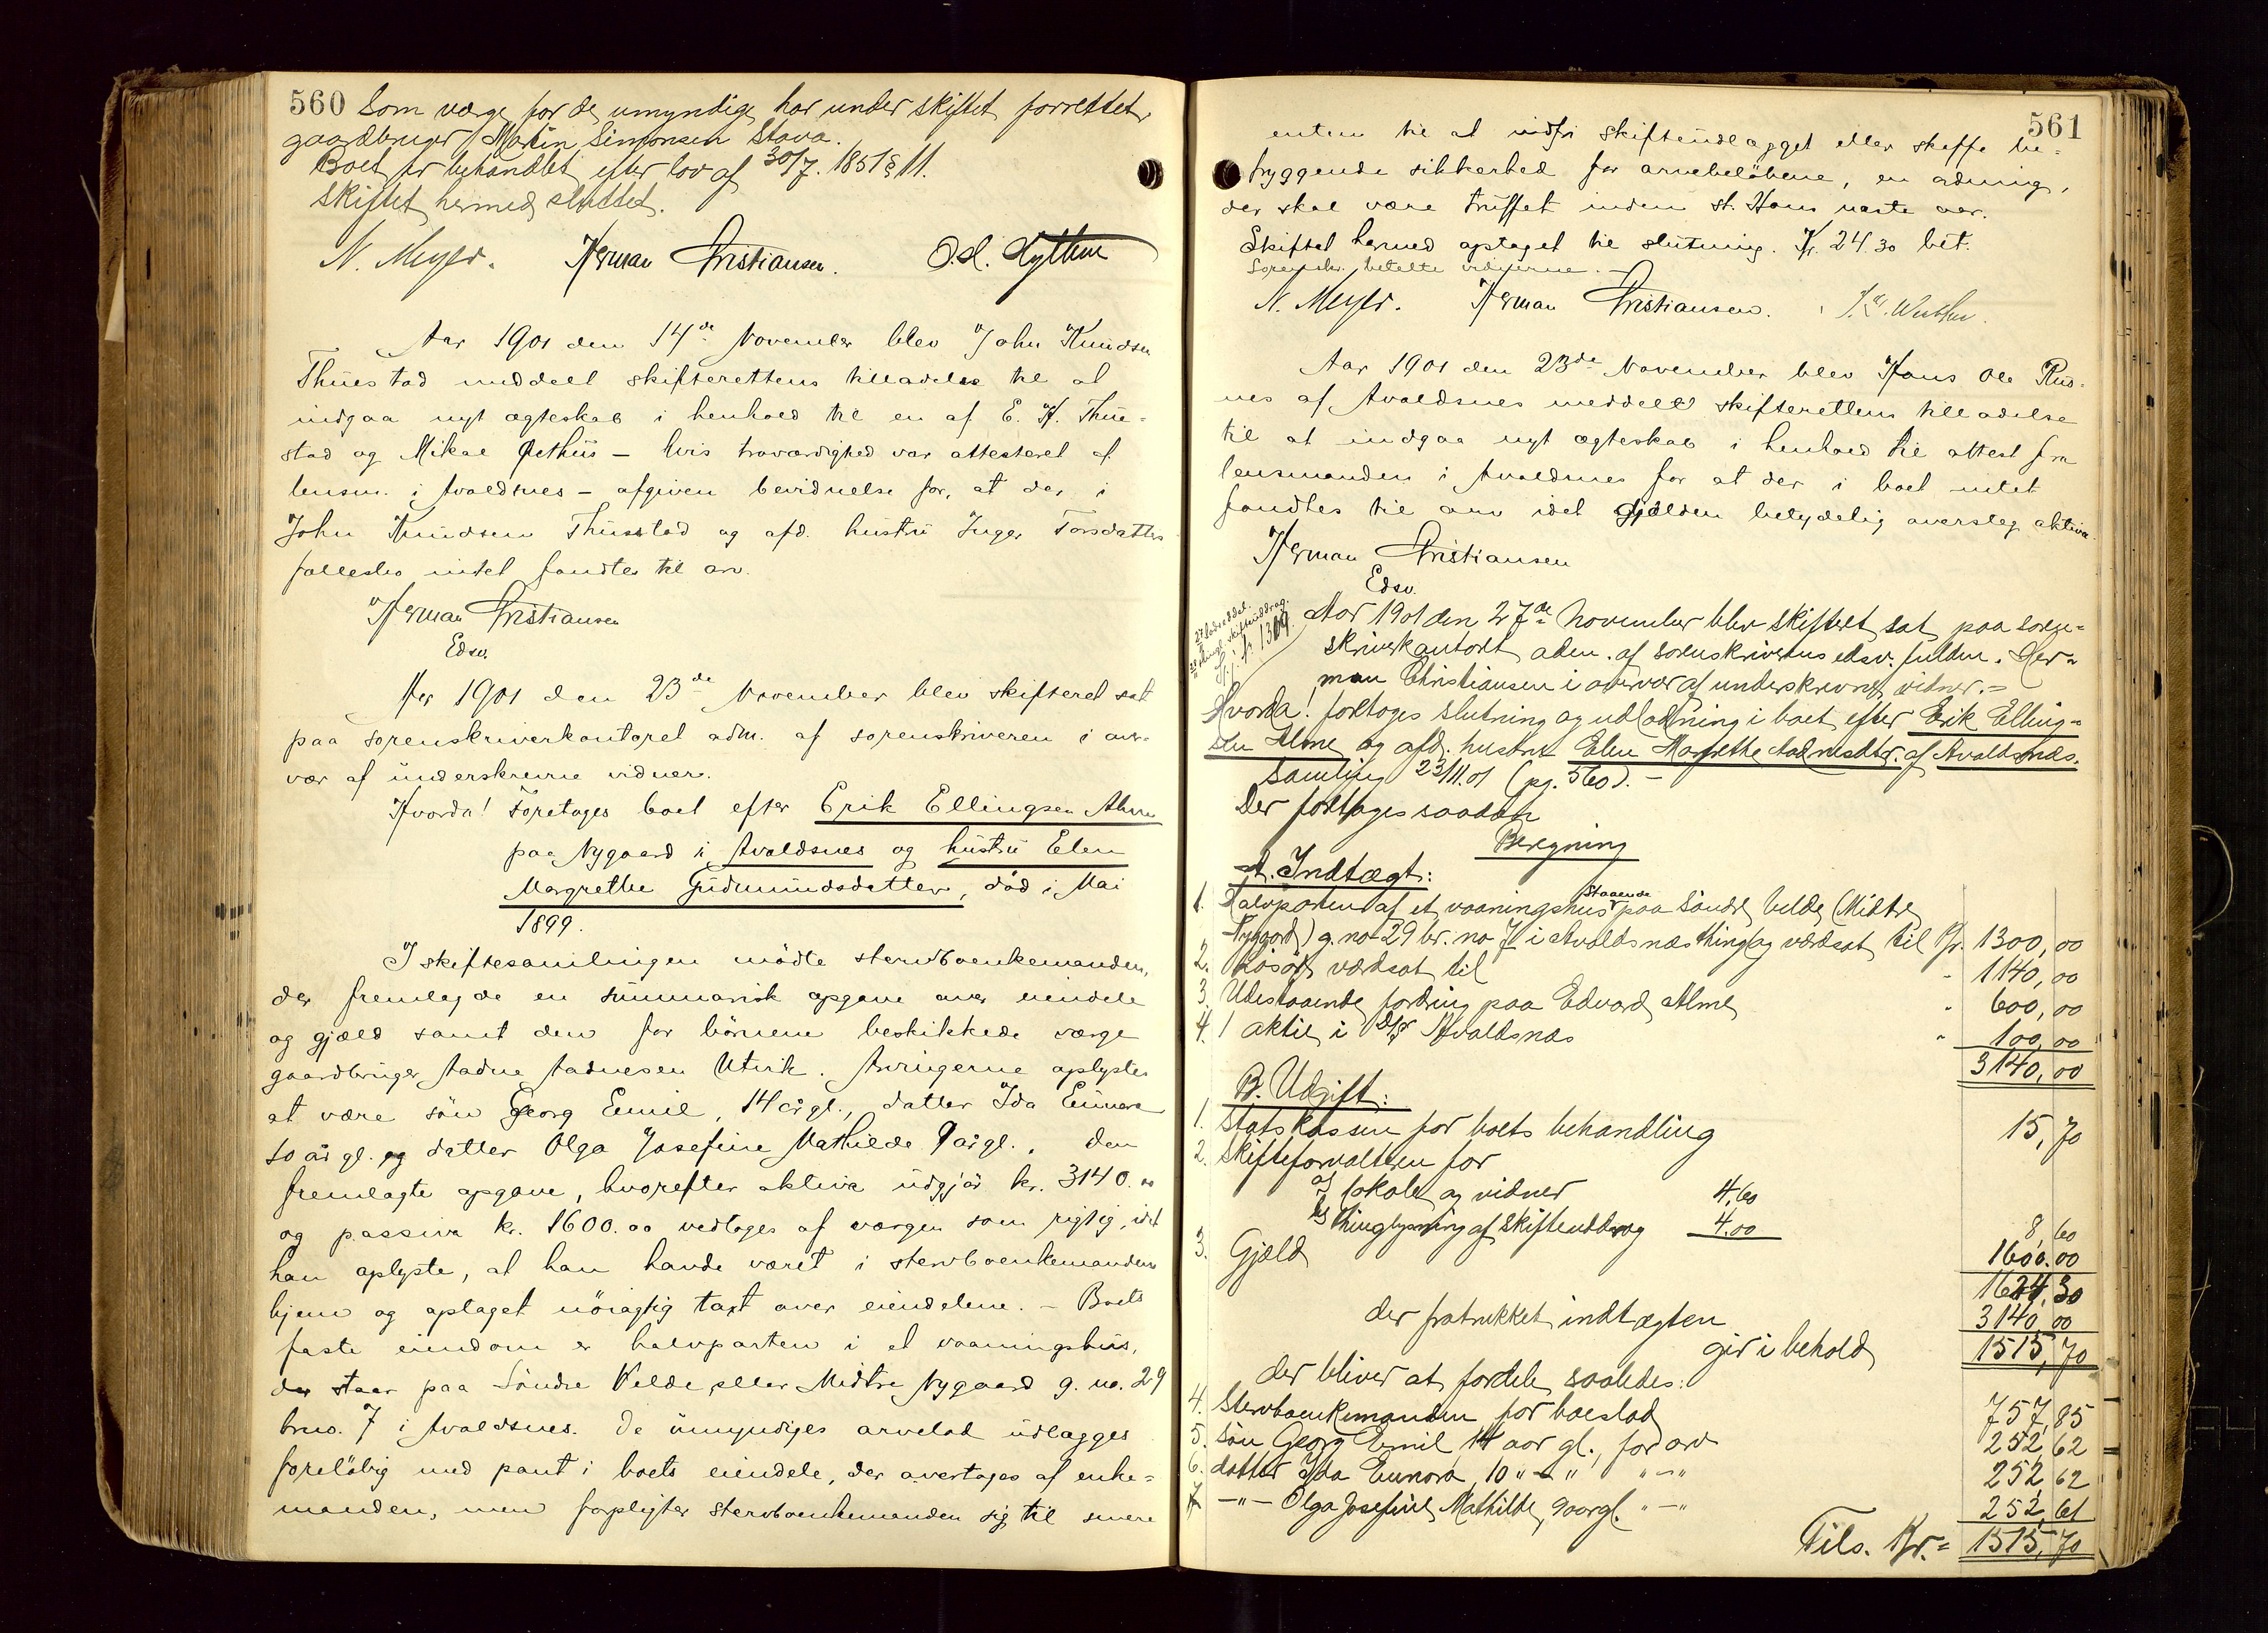 560 Som værge for de umyndige har under skiftet forrettet
gaardbruger Martin Simonsen Stava.
Boet er behandlet efter lov af 30/7. 1851 § 11.
Skiftet hermed sluttet.
N. Meyer. Herman Christiansen. O. d. Lythm
Aar 1901 den 14de November blev John Knudsen
Thuestad meddelt skifterettens tilladelse til at
indgaa nyt ægteskab i henhold til en af E. K. Thue-
stad og Mikal Rethus – hvis troværdighed var attesteret af
lensm. i Avaldsnes – afgiven bevidnelse for, at der i
John Knudsen Thuestad og afd. hustru Inger Torsdatters
fællesbo intet fandtes til arv.
Herman Christiansen
Edsv.
Aar 1901 den 23de November blev skifteret sat
paa sorenskriverkontoret adm. af sorenskriveren i over-
vær af underskrevne vidner.
Hvorda! Foretoges boet efter Erik Ellingsen Alme
paa Nygaard i Avaldsnes og hustru Elen
Margrethe Gudmundsdatter, död i Mai
1899.
I skiftesamlingen mödte stervboenkemanden,
der fremlagde en summarisk opgave over eiendele
og gjæld samt den for börnene beskikkede værge
gaardbruger Aadne Aadnesen Utvik. Arvingerne oplystes
at være sön Georg Emil, 14 år gl., datter Ida Eunora
10 år gl. og datter Olga Josefine Mathilde 9 år gl., Den
fremlagte opgave, hvorefter aktiva udgjör kr. 3140.00
og passiva kr. 1600.00 vedtoges af værgen som rigtig, idet
han oplyste, at han havde været i stervboenkemandens
hjem og optaget nöiagtig taxt over eiendelene. – Boets
faste eiendom er halvparten i et vaaningshus,
der staar paa Söndre Velde eller Midtre Nygaard g. no. 29
brno. 7 i Avaldsnes. De umyndiges arvelod udlægges
forelöbig med pant i boets eiendele, der overtages af enke-
manden, men forpligter stervboenkemanden sig til senere
561
enten til at indfri skifteudlægget eller skaffe be-
tryggende sikkerhed for arvebelöbene, en ordning,
der skal være truffet inden St. Hans næste aar.
Skiftet hermed optaget til slutning. Kr. 24.30 bet.
Sorenskr. betalte vidnerne. –
N. Meyer. Herman Christiansen.
Aar 1901 den 23de November blev Hans Ole Rus-
nes af Avaldsnes meddelt skifterettens tilladelse
til at indgaa nyt ægteskab i henhold til attest fra
lensmanden i Avaldsnes for at der i boet intet
fandtes til arv idet gjælden betydelig oversteg aktiva.
Herman Christiansen
Edsv.
Aar 1901 den 27de November blev skifteret sat paa soren-
skriverkontoret adm. af sorenskriverens edsv. fuldm. Her-
man Christiansen i overvær af underskrevne vidner. –
Hvorda! foretoges slutning og udlodning i boet efter Erik Elling-
sen Alme og afd. hustru Elen Margrethe Aadnesdtr. af Avaldsnæs.
Samling 23/11.01 (pg. 560). –
Der foretoges saadan
Beregning
A. Indtægt:
1. Halvparten af et vaaningshus staaende paa Söndre Velde (Midtre
Nygaard) g. no 29 br. no 7 i Avaldsnæs thinglag værdsat til Kr. 1300,00
2. Lösöre værdsat til " 1140,00
3. Udestaaende fordring paa Edvard Alme " 600,00
4. 1 aktie i D/S Avaldsnæs " 100,00
3140,00
B. Udgift:
1. Statskassen for boets behandling 15,70
2. Skifteforvalteren for
a) lokale og vidner 4.60
b) thinglysning af skifteuddrag 4.00
8,60
3. Gjæld 1600.00
1624,30
der fratrukket indtægten 3140,00
gir i behold 1515,70
der bliver at fordele saaledes:
4. Stervboenkemanden for boeslod 757,85
5. Sön Georg Emil 14 aar gl., for arv 252,62
6. datter Ida Eunora 10 " – " " – " 252,62
7 – " – Olga Josefine Mathilde, 9 aar gl. " – " 252,61
Tils. Kr. = 1515,70